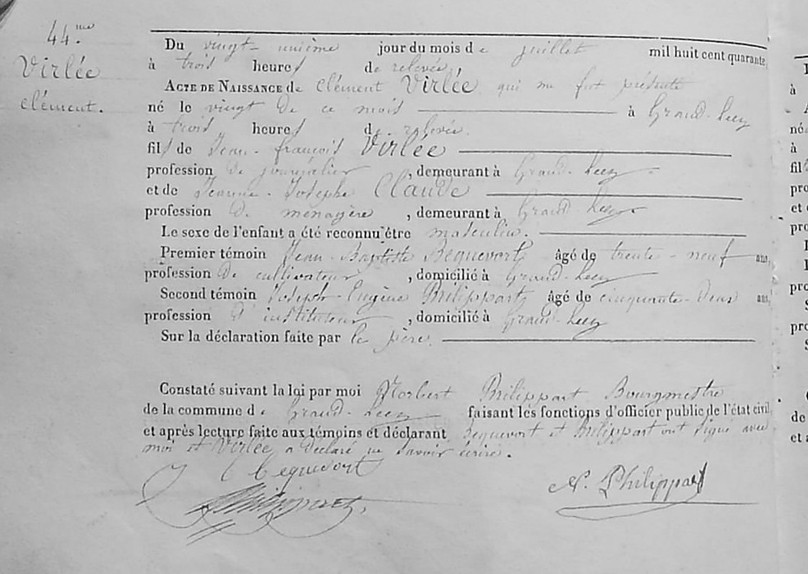 44.me
Virlée
Clément.
Du vingt-unième jour du mois de juillet mil huit cent quarante,
à trois heures de relevée,
ACTE DE NAISSANCE de Clément Virlée qui me fut présenté
né le vingt de ce mois à Grand-Leez
à trois heures de relevée.
fils de Jean-françois Virlée
profession de journalier, demeurant à Grand-Leez
et de Jeanne-Josephe Claude
profession de ménagère, demeurant à Grand Leez
Le sexe de l'enfant a été reconnu être masculin.
Premier témoin Jean-Baptiste Bequevort âgé de trente-neuf ans,
profession de cultivateur, domicilié à Grand-Leez
Second témoin Joseph-Eugène Philippart âgé de cinquante-deux ans,
profession d'instituteur, domicilié à Grand-Leez
Sur la déclaration faite par le père.
Constaté suivant la loi par moi Norbert Philippart Bourgmestre
de la commune de Grand-Leez faisant les fonctions d'officier public de l'état civil
et après lecture faite aux témoins et déclarant Bequevort et Philippart ont signé avec
moi et Virlée a déclaré ne savoir écrire.
Bequevort
Philippart
N. Philippart